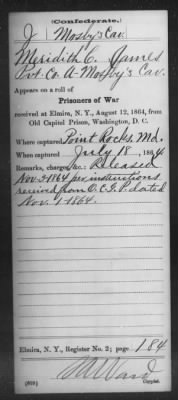 (Confederate.)
J Mosby's Cav.
Meridith C. James
Pvt. Co. A - Mosby's Cav.
Appears on a roll of
Prisoners of War
received at Elmira, N. Y., August 12, 1864, from
Old Capitol Prison, Washington, D. C.
Where captured Point Rocks, Md.
When captured July 18, 1864
Remarks, charges, &c.: Released
Nov. 2 1864 per instructions
received from O.C.G.P. dated
Nov. 1 1864.
Elmira, N. Y., Register No. 2; page 184
Ward
Copyist.